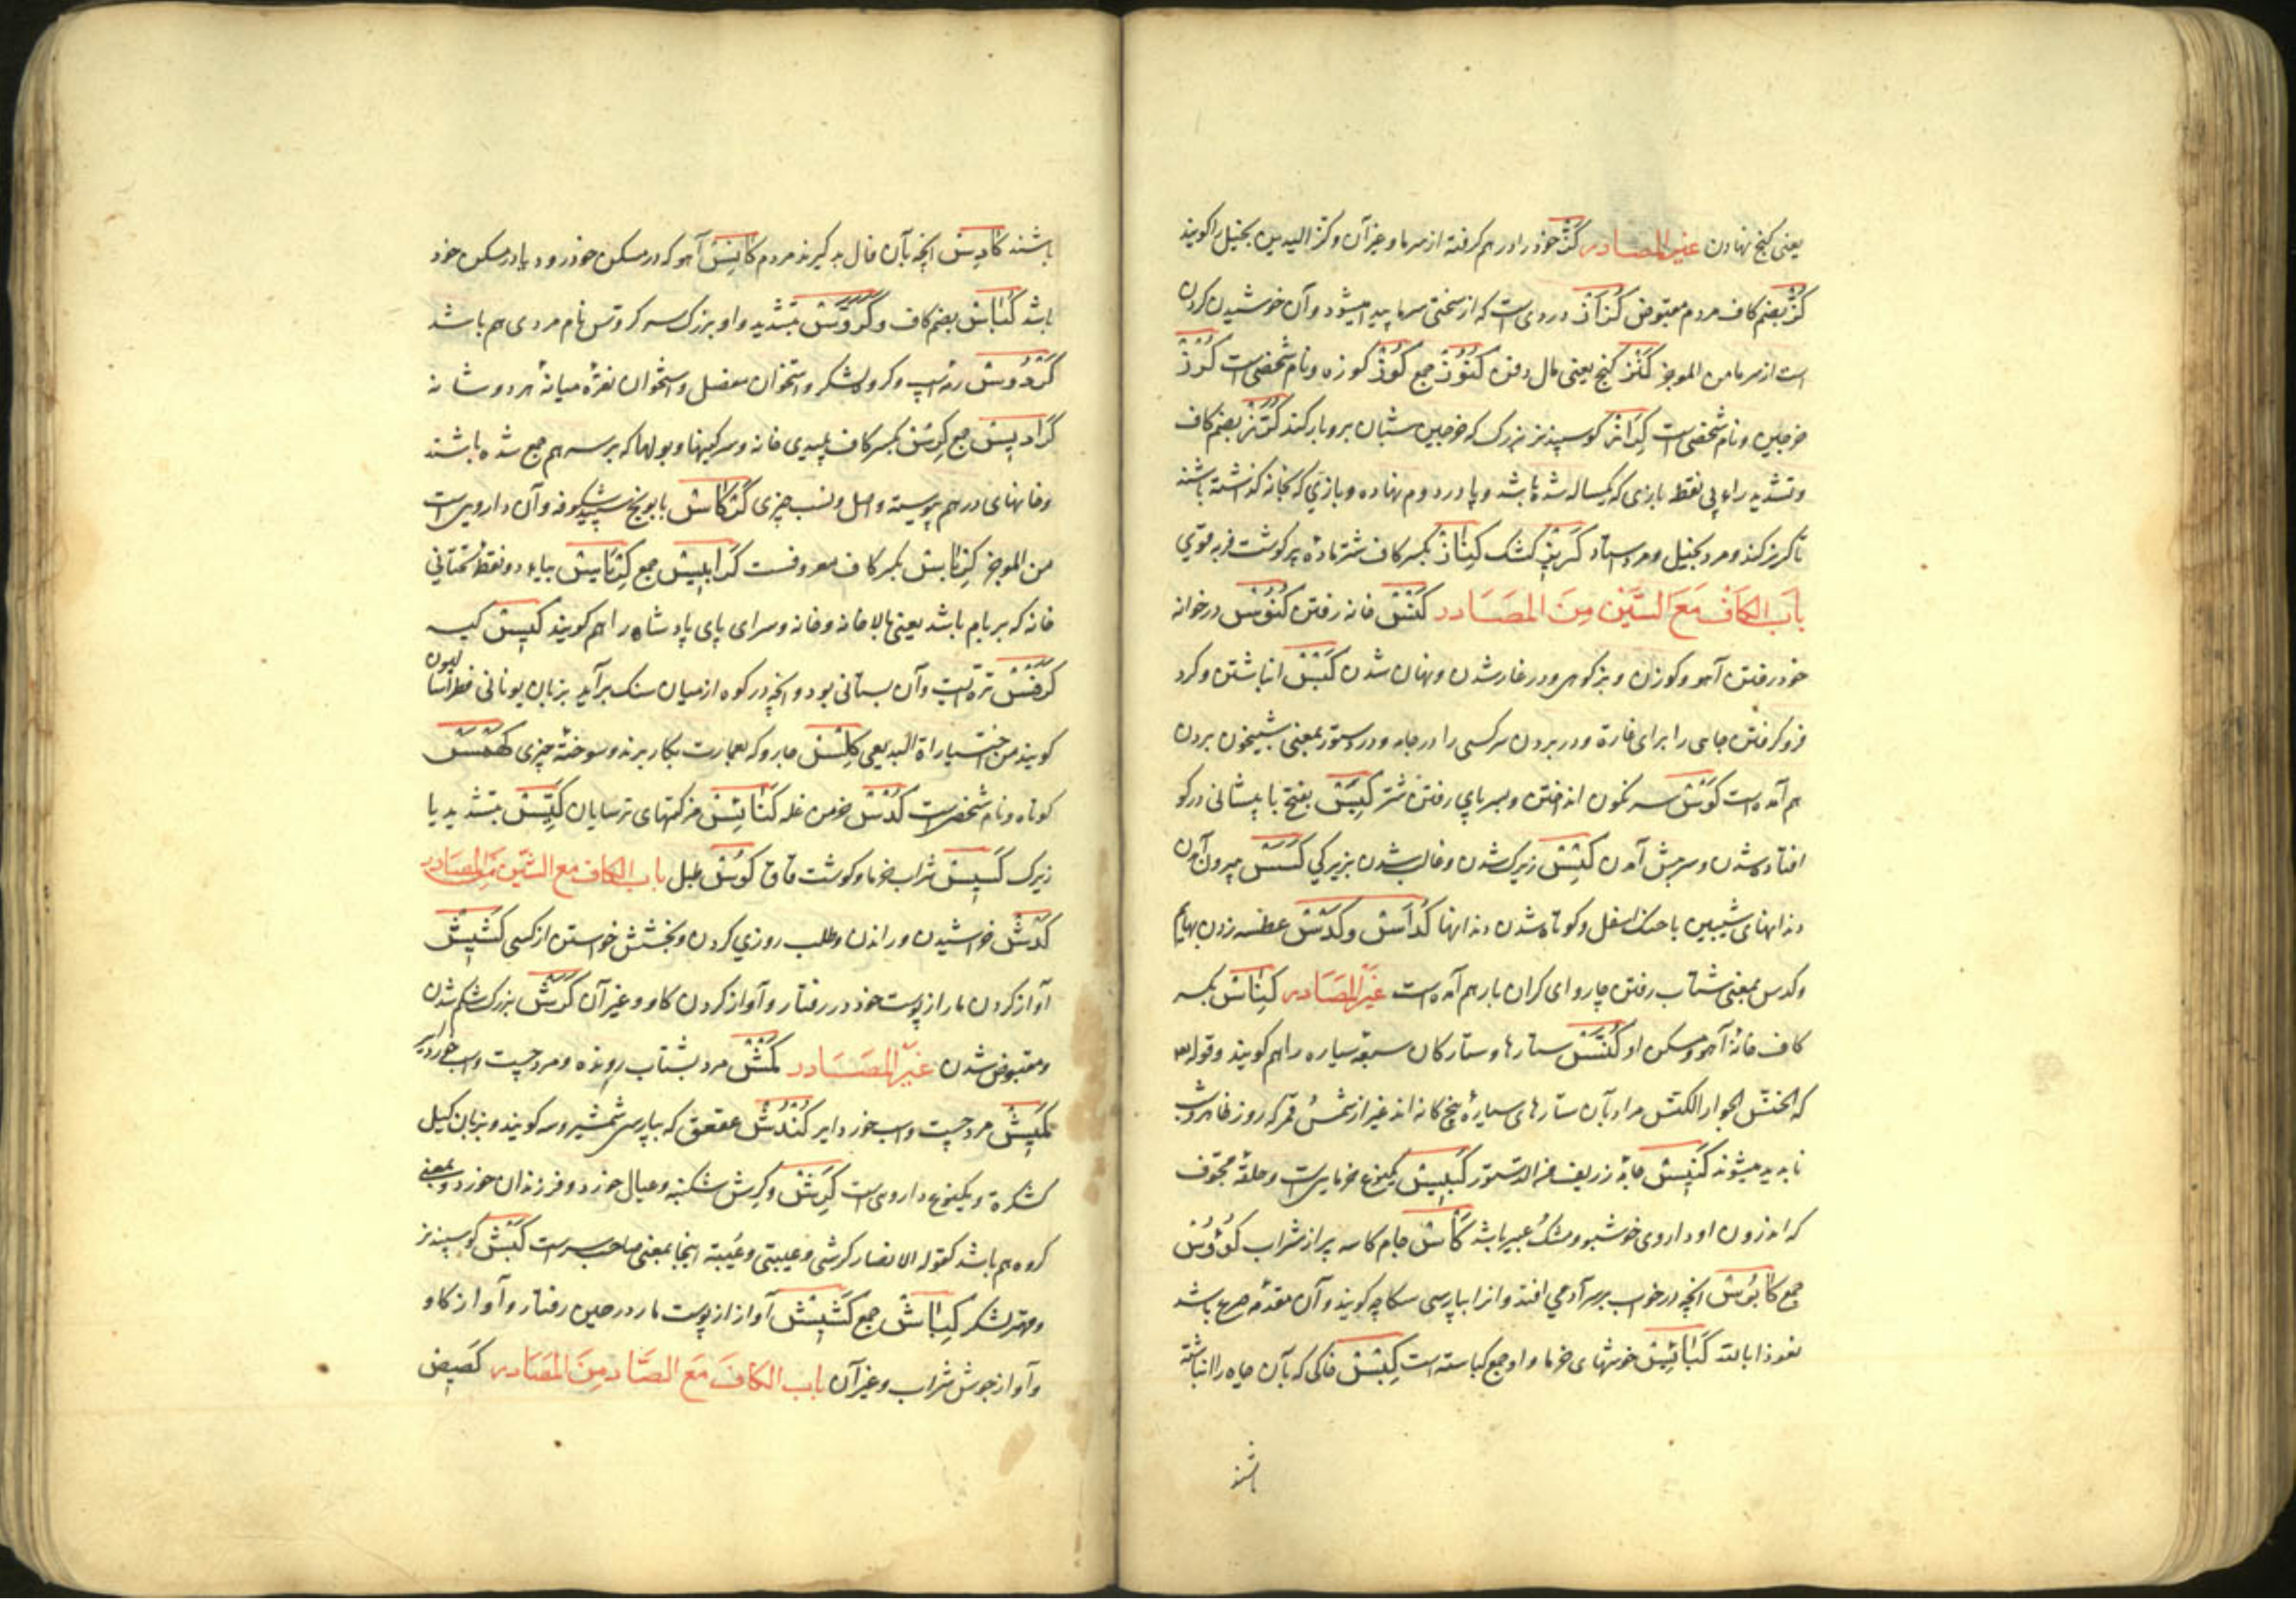 یعنی کنج نهادن غیر المصادر کز خود را در هم کرفته از سرما و غیر آن و کز الیدین بخیل را کویند
کز بضم کاف مردم مقبوض کزاز دردی است که از سختی سرما پیدا میشود و آن خوشیدن کردن
است از سرما من الموجز کنز کنج یعنی مال دفن کنوز جمع کوز کوزه و نام شخصی است کرز
خرجین و نام شخصی است کراز کوسپند نر بزرک که خرجین شبان برو بار کنند کرز بضم کاف
و تشدید راء بی نقط بازی که یکساله شده باشد و پا در دوم نهاده و بازی که بخانه کذاشته باشند
تا کریز کند و مرد بخیل و مرد استاد کریز کشک کناز بکسر کاف شتر ماده پر کوشت فربه قوی
باب الکاف مع السین من المصادر کنس خانه رفتن کنوس در خوانه
خود رفتن آهو و کوزن و بز کوهی و در غار شدن و نهان شدن کبس انباشتن و کرد
فرو کرفتن جایی را برای غارة و در بردن سر کسی را در جامه و در دستور بمعنی شبیخون بردن
هم آمده است کوس سر نکون انداختن و بسر پای رفتن شتر کبس بفتح با پیشانی در کو
افتاده شدن و سر پیش آمدن کیس زیرک شدن و غالب شدن بزیرکی کسس بیرون آمدن
دندانهای شیبین با حنک اسفل و کوتاه شدن دندانها کداس و کدس عطسه زدن بهایم
و کدس بمعنی شتاب رفتن چاروای کران بار هم آمده است غیر المصادر کناس بکسر
کاف خانهٔ آهو و مسکن او کنس ستارها و ستارکان سبعه سیاره را هم کویند و قوله تع
که الخنس الجوار الکنس مراد بآن ستارهای سیارهٔ پنج کانه اند غیر از شمس و قمر که روز ظاهر و شب
ناپدید میشوند کنیس جامهٔ زربفت من الدستور کبیس یکنوع خرمایی است و حلقهٔ مجوف
که اندرون او داروی خوشبو و مشک و عبیر باشد کاس جام کاسه پر از شراب کؤوس
جمع کابوس انچه در خواب بر سر آدمی افتد و انرا بپارسی سکاچه کویند و آن مقدمهٔ صرع باشد
نعوذ بالله کبائس خوشهای خرما و او جمع کباسه است کبس خاکی که بآن چاه را انباشته
باشند
باشند کادس انچه بآن فال بد کیرند مردم کانس آهو که در مسکن خود رود یا در مسکن خود
باشد کناس بضم کاف و کروس بتشدید واو بزرک سر کروس نام مردی هم باشد
کردوس رمهٔ اسپ و کروه لشکر و استخوان مفصل و استخوان نغزهٔ میانهٔ هر دو شانه
کرادیس جمع کرس بکسر کاف پلیدی خانه و سرکینها و بولها که بر سر هم جمع شده باشند
و خانهای در هم پیوسته و اصل و نسب چیزی کرکاس بابونج سپید شکوفه و آن دارویی است
من الموجز کرباس بکسر کاف معروفست کرابیس جمع کریاس بیاء دو نقط تحتانی
خانه که بر بام باشد یعنی بالا خانه و خانه و سرای پای پادشاه را هم کویند کیس کیسه
کرفس تره ایست و آن بستانی بود و انچه در کوه از میان سنک بر آید بزبان یونانی فطراسالیون
کویند من اختیارات البدیعی کلس جارو که بعمارت بکار برند و سوختهٔ چیزی کهمس
کوتاه و نام شخصی است کدس خرمن غله کنائس مزکتهای ترسایان کیس بتشدید یا
زیرک کسیس شراب خرما و کوشت قاق کوس طبل باب الکاف مع الشین من المصادر
کدش خراشیدن و راندن و طلب روزی کردن و بخشش خواستن از کسی کشیش
آواز کردن مار از پوست خود در رفتار و آواز کردن کاو و غیر آن کرش بزرک شکم شدن
و مقبوض شدن غیر المصادر کمش مرد بشتاب رونده و مرد چست و اسپ خورد ایر
کمیش مرد چست و اسپ خورد ایر کندش عقعق که بپارسی شمشیر و سه کویند و بزبان کیل
کشکره و یکنوع داروی است کرش و کرش شکنبه و عیال خورد و فرزندان خورد و بمعنی
کروه هم باشد کقوله الانصار کرشی و عیبتی و عیبة اینجا بمعنی صاحب سر است کبش کوسپند نر
و مهتر لشکر کباش جمع کشیش آواز از پوست مار در حین رفتار و آواز کاو
و آواز جوش شراب و غیر آن باب الکاف مع الصاد من المصادر کصیص